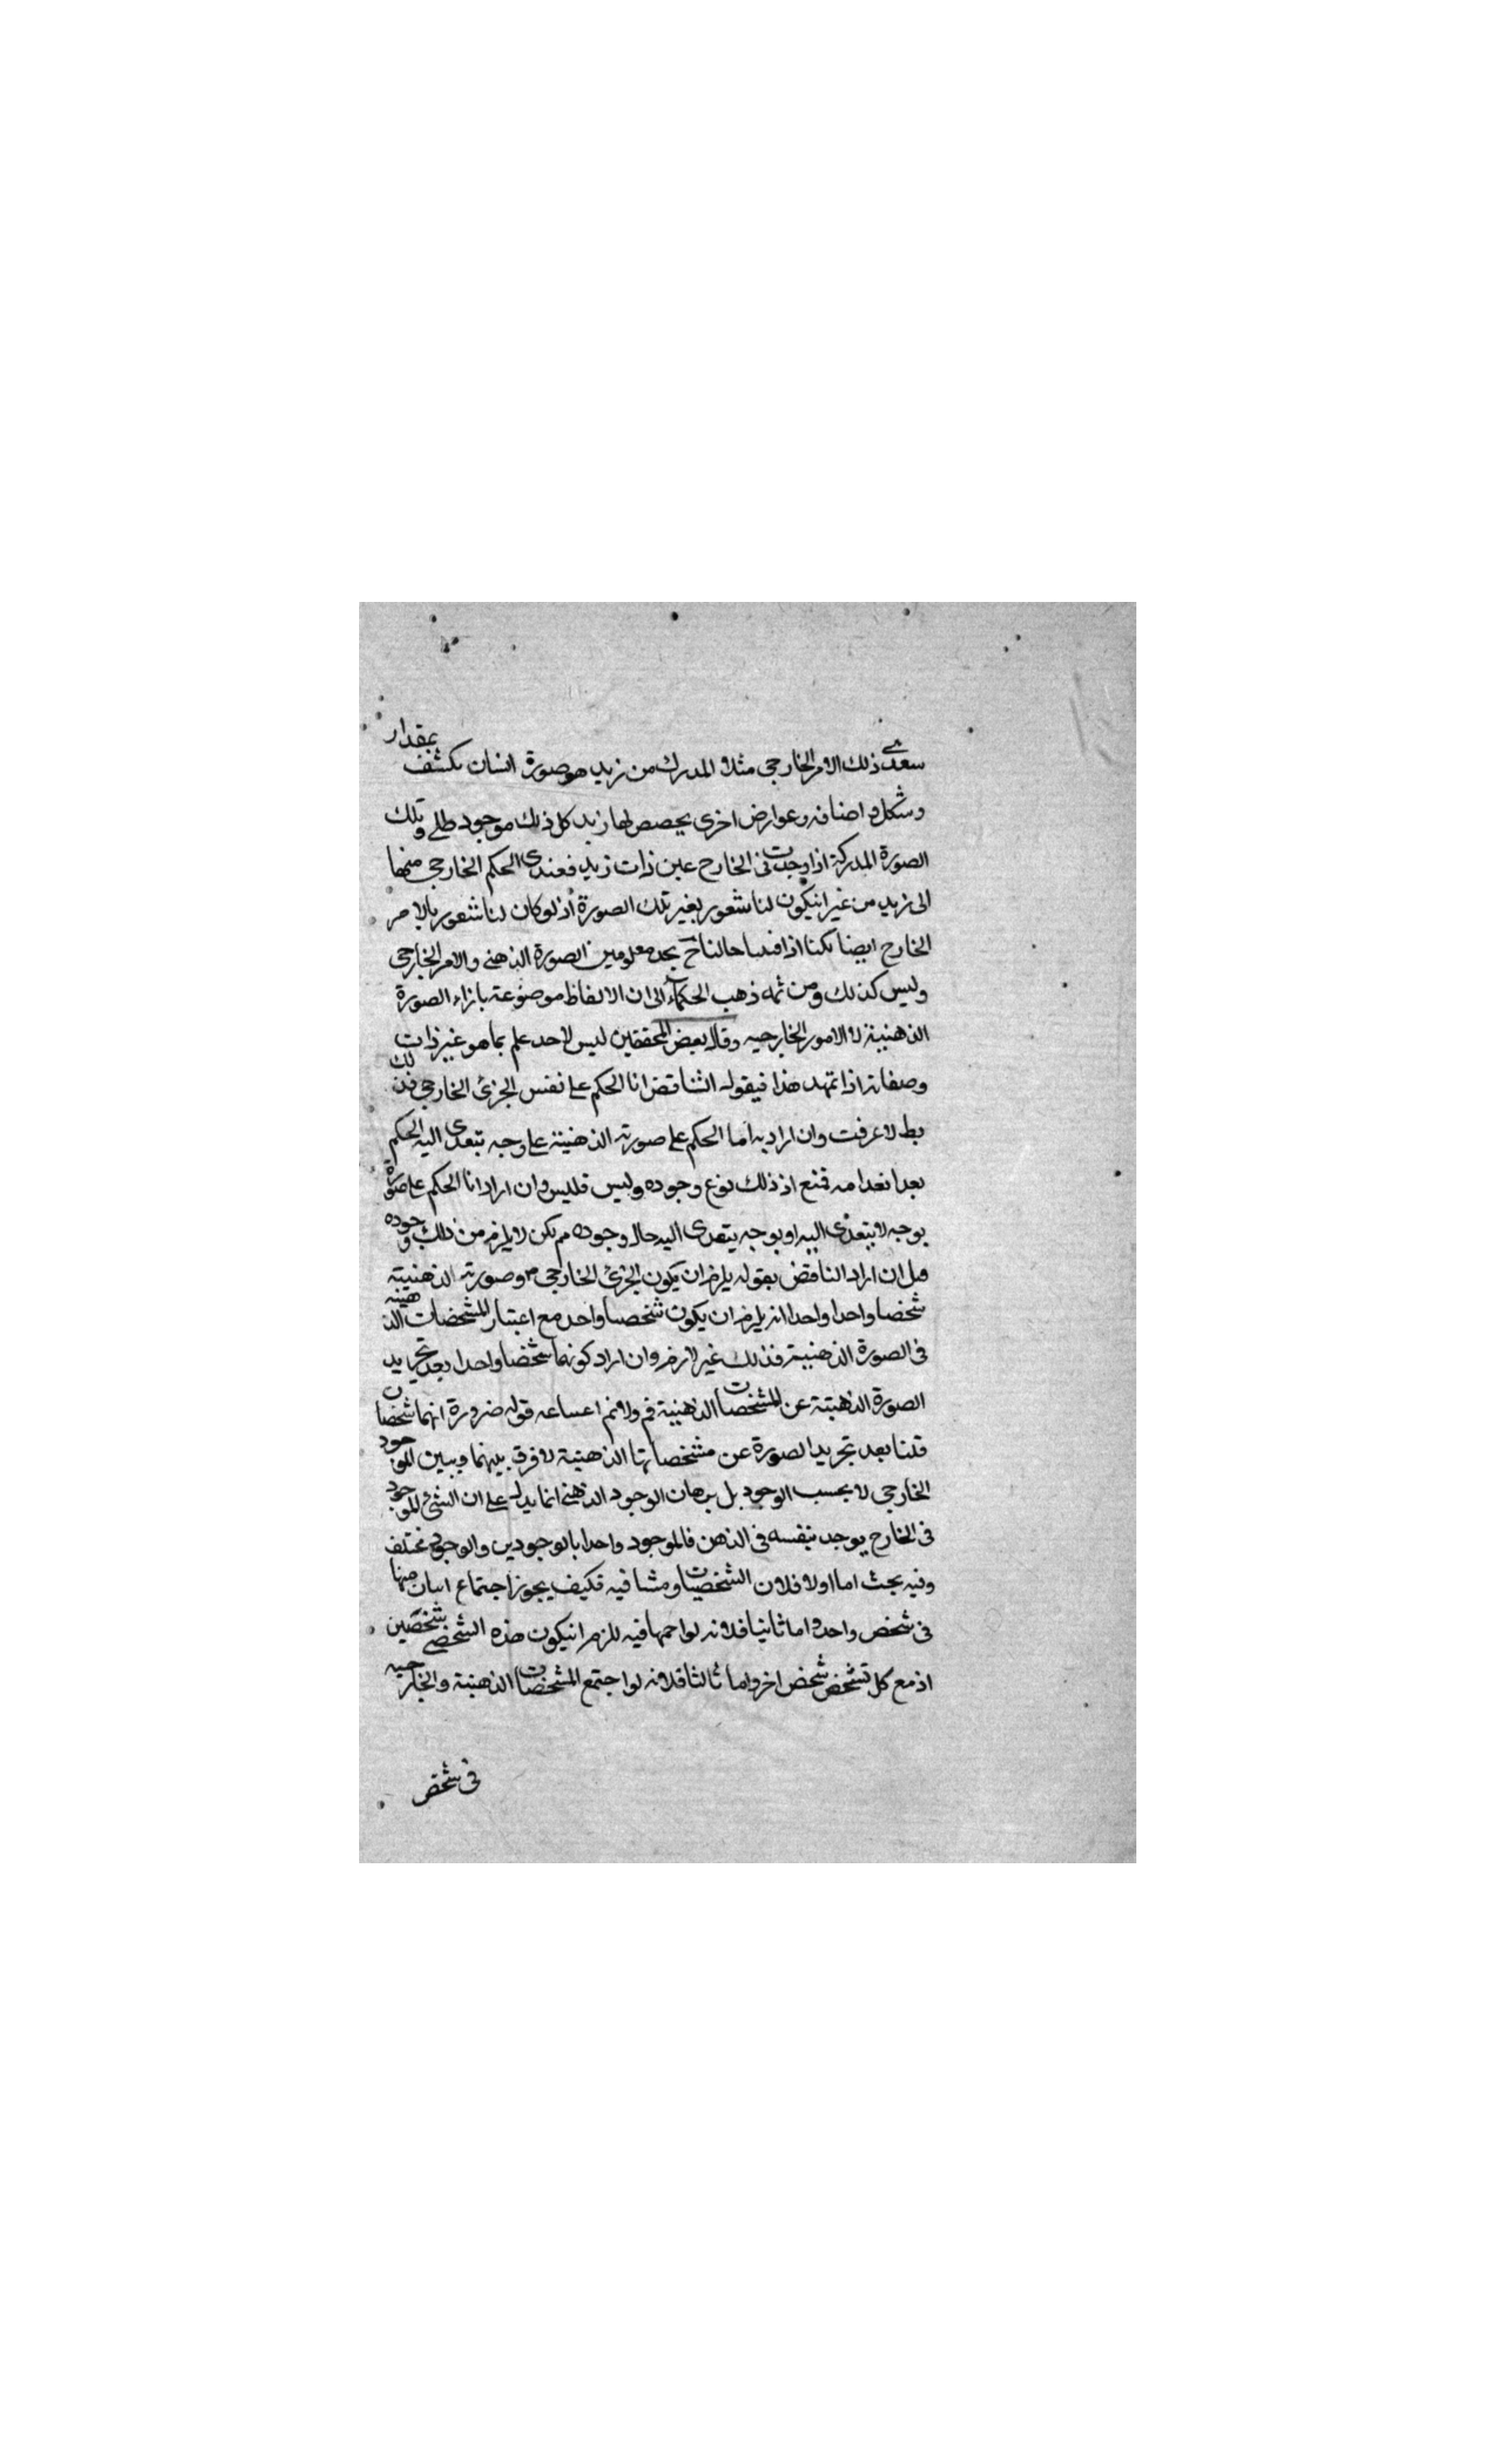 ذلك الامر الخارجي مثلا المدرك من زيد هو صورة انسان بمقدار
وشكل واضافة وعوارض اخرى لها زيد كل ذلك موجود وتلك
الصورة المدركة اذا وجدت في الخارج عين ذات زيد الحكم الخارجي منها
الى زيد من غير انيكون لنا شعور بغير تلك الصورة اذ لو كان لنا شعور بالامر
الخارج ايضا لكنا اذا حالنا نجد معلومين الصورة الذهني والامر الخارجي
وليس كذلك ومن ثمه ذهب الحكماء الى ان الالفاظ موضوعة بازاء الصورة
الذهنية لا الامور الخارجيه وقال بعض المحققين ليس لاحد علم بما هو غير ذات
وصفاته اذا تمهد هذا فيقوله الناقض انا الحكم على نفس الجزئى الخارجي فذلك
بط لا عرفت وان اراد به انا الحكم على صورته الذهنية على وجه تتعدى اليه الحكم
بعد انعدامه اذ ذلك نوع وجوده وليس فليس وان اراد انا الحكم على صورة
بوجه لا يتعدى اليه او بوجه يتعدى اليه حال وجوده مم لكن لا يلزم من ذلك وجوده
قيل ان اراد الناقض بقوله يلزم ان يكون الجزئى الخارجي وصورته الذهنية
شخصا واحدا واحدا انه يلزم ان يكون شخصا واحد مع اعتبار المشخصات الذهنية
في الصورة الذهنية فذلك غير لازم وان اراد كونهما شخصا واحدا بعد تجريد
الصورة الذهنية عن المشخصات الذهنية فم ولانم قوله ضرورة انهما شخصان
قلنا بعد تجريد الصورة عن مشخصاتها الذهنية لا فرق بينهما وبين الموجود
الخارجي لا بحسب الوجود بل برهان الوجود الذهني انما يدل على ان الشئ الموجود
في الخارج يوجد بنفسه في الذهن فالموجود واحدا بالوجودين والوجود مختلف
وفيه بحث اما اولا فلان الشخصيات فكيف يجوز اجتماع اثنان منها
في شخص واحد واما ثانيا فلانه لو فيه للزم انيكون هذه الشخص شخصين
اذ مع كل تشخص شخص اخر واما ثالثا فلانه لو اجتمع المشخصات الذهنية والخارجيه
في شخص